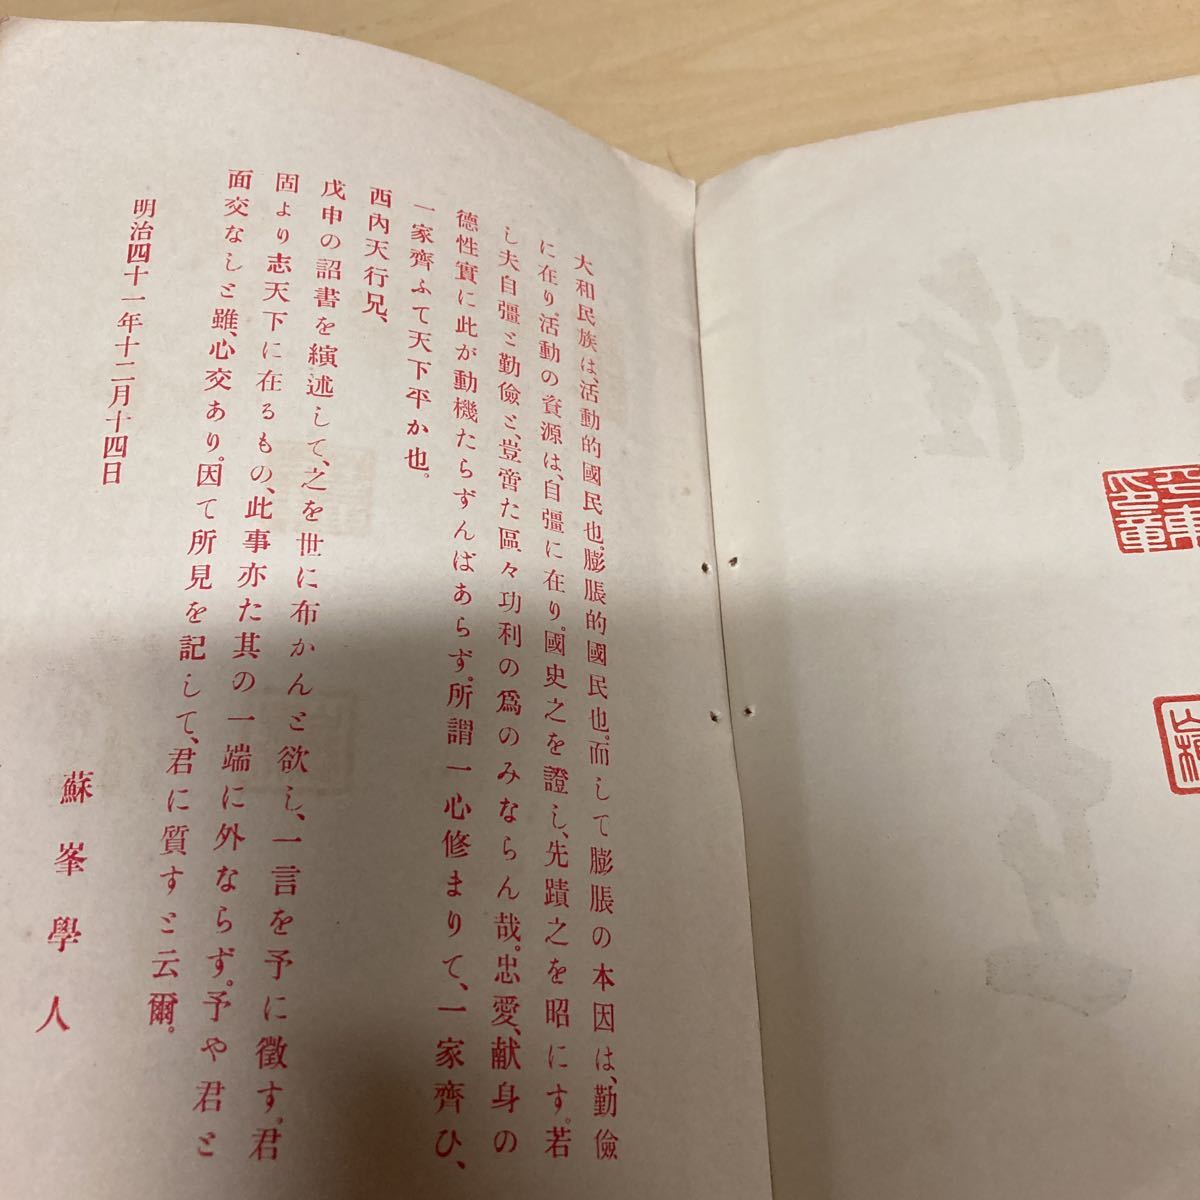 大和民族は、活動的國民也。膨脹的國民也。而して膨脹の本因は、勤儉
に在り。活動の資源は、自彊に在り。國史之を證し、先蹟之を昭にす。若
し夫自彊と勤儉と、豈啻た區々功利の爲のみならん哉。忠愛、献身の
德性實に此が動機たらずんばあらず。所謂一心修まりて、一家齊ひ、
一家齊ふて天下平か也。
西內天行兄、
戊申の詔書を縯述して、之を世に布かんと欲し、一言を予に徵す。君
固より志天下に在るもの、此事亦た其の一端に外ならず。予や君と
面交なしと雖、心交あり。因て所見を記して、君に質すと云爾。
明治四十一年十二月十四日
蘇峯學人